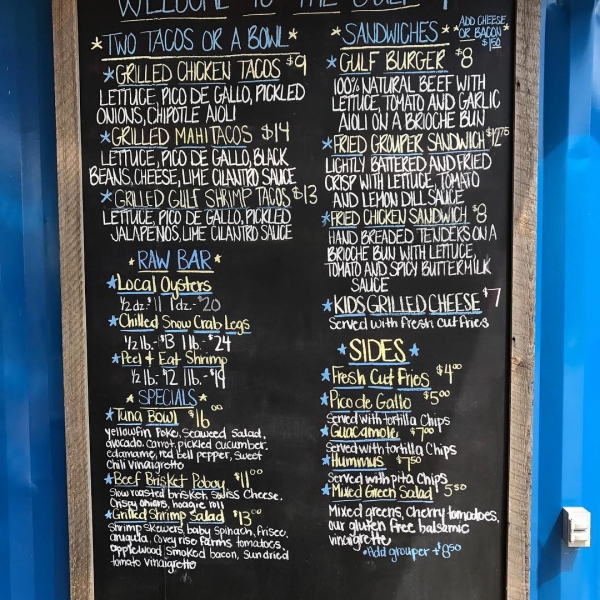 WELCOME TO THE GULF
*TWO TACOS OR A BOWL*
*GRILLED CHICKEN TACOS $9
LETTUCE, PICO DE GALLO, PICKLED
ONIONS, CHIPOTLE AIOLI
*GRILLED MAHI TACOS $14
LETTUCE, PICO DE GALLO, BLACK
BEANS, CHEESE, LIME CILANTRO SAUCE
*GRILLED GULF SHRIMP TACOS $13
LETTUCE, PICO DE GALLO, PICKLED
JALAPENOS, LIME CILANTRO SAUCE
*RAW BAR*
*Local Oysters
1/2 dz.-$11 1 dz.-$20
*Chilled Snow Crab Legs
1/2 lb.-$13 1 lb.-$24
*Peel & Eat Shrimp
1/2 lb.-$12 1 lb.-$19
*SPECIALS*
*Tuna Bowl $16.00
yellowfin Poke, Seaweed Salad,
avocado, carrot, pickled cucumber,
edamame, red bell pepper, sweet
Chili vinaigrette
*Beef Brisket Poboy $11.00
Slow roasted brisket, Swiss Cheese,
Crispy onions, hoagie roll
*Grilled Shrimp Salad $13.00
Shrimp Skewers, baby Spinach, Frisee,
arugula, Covey rise Farms tomatoes,
applewood smoked bacon, Sundried
tomato vinaigrette
*SANDWICHES*
*ADD CHEESE
OR BACON*
$1.50
*GULF BURGER $8
100% NATURAL BEEF WITH
LETTUCE, TOMATO AND GARLIC
AIOLI ON A BRIOCHE BUN
*FRIED GROUPER SANDWICH $12.75
LIGHTLY BATTERED AND FRIED
CRISP WITH LETTUCE, TOMATO
AND LEMON DILL SAUCE
*FRIED CHICKEN SANDWICH $8
HAND BREADED TENDERS ON A
BRIOCHE BUN WITH LETTUCE,
TOMATO AND SPICY BUTTERMILK
SAUCE
*KIDS GRILLED CHEESE $7
Served with fresh cut fries
*SIDES*
*Fresh Cut Fries $4.00
*Pico de Gallo $5.00
Served with tortilla Chips
*Guacamole $7.00
Served with tortilla Chips
*Hummus $7.50
Served with pita Chips
*Mixed Green Salad $5.50
Mixed greens, Cherry tomatoes,
our gluten free balsamic
vinaigrette
*Add grouper + 8.50